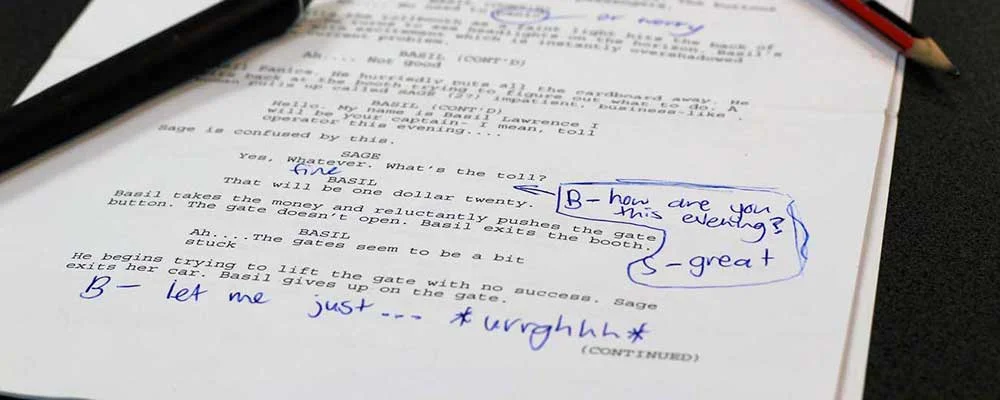 or worry
the tollbooth as a faint light hits the back of
headlights on the horizon. Basil's
excitement which is instantly overshadowed
current problem.
BASIL (CONT'D)
Ah.... Not good
Panics. He hurriedly puts all the cardboard away. He
back at the booth trying to figure out what to do. A
pulls up called SAGE (27) impatient, business-like.
BASIL (CONT'D)
Hello. My name is Basil Lawrence I
will be your captain- I mean, toll
operator this evening....
Sage is confused by this.
SAGE
Yes, Whatever. What's the toll?
fine
BASIL
That will be one dollar twenty.
B- how are you
this evening?
S-great
Basil takes the money and reluctantly pushes the gate
button. The gate doesn't open. Basil exits the booth.
BASIL
Ah....The gates seem to be a bit
stuck
He begins trying to lift the gate with no success. Sage
exits her car. Basil gives up on the gate.
B- let me just... *urrghhh*
(CONTINUED)